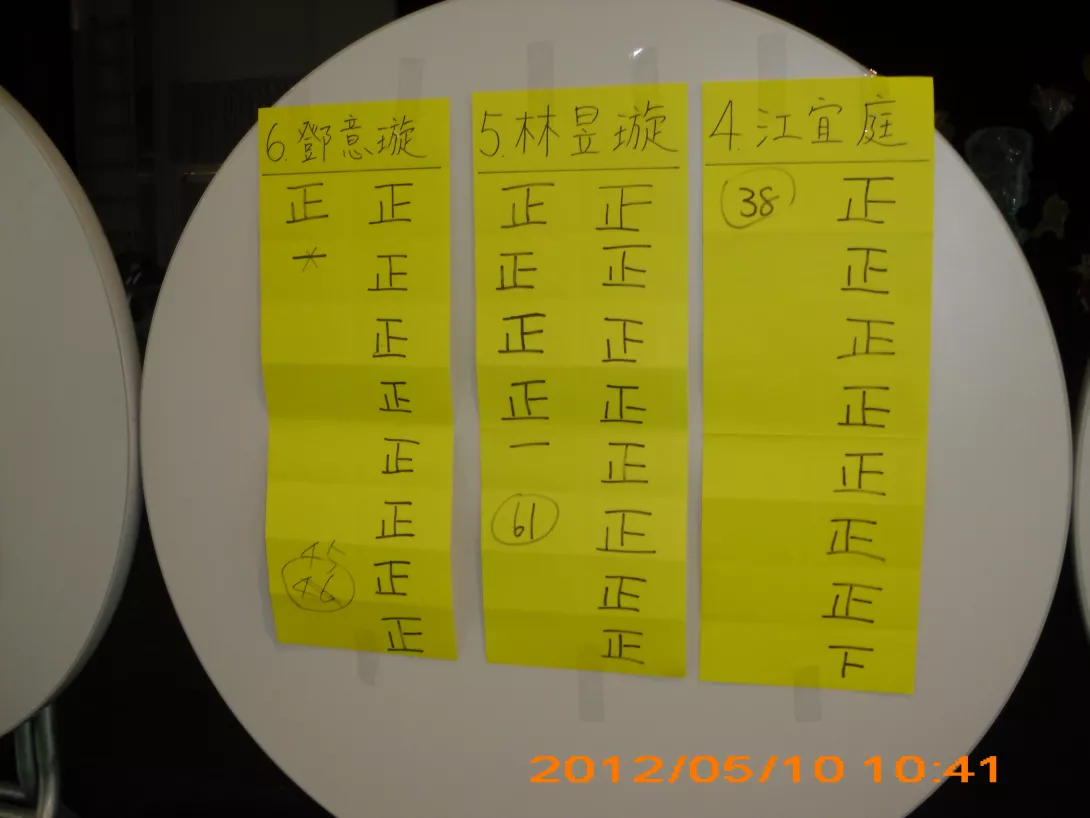 6.鄧意璇
正 正
正
正
正
正
正
45 正
46 正
5.林昱璇
正 正
正 正
正 正
正 正
一 正
61 正
正
正
4.江宜庭
38 正
正
正
正
正
正
正
下
2012/05/10 10:41